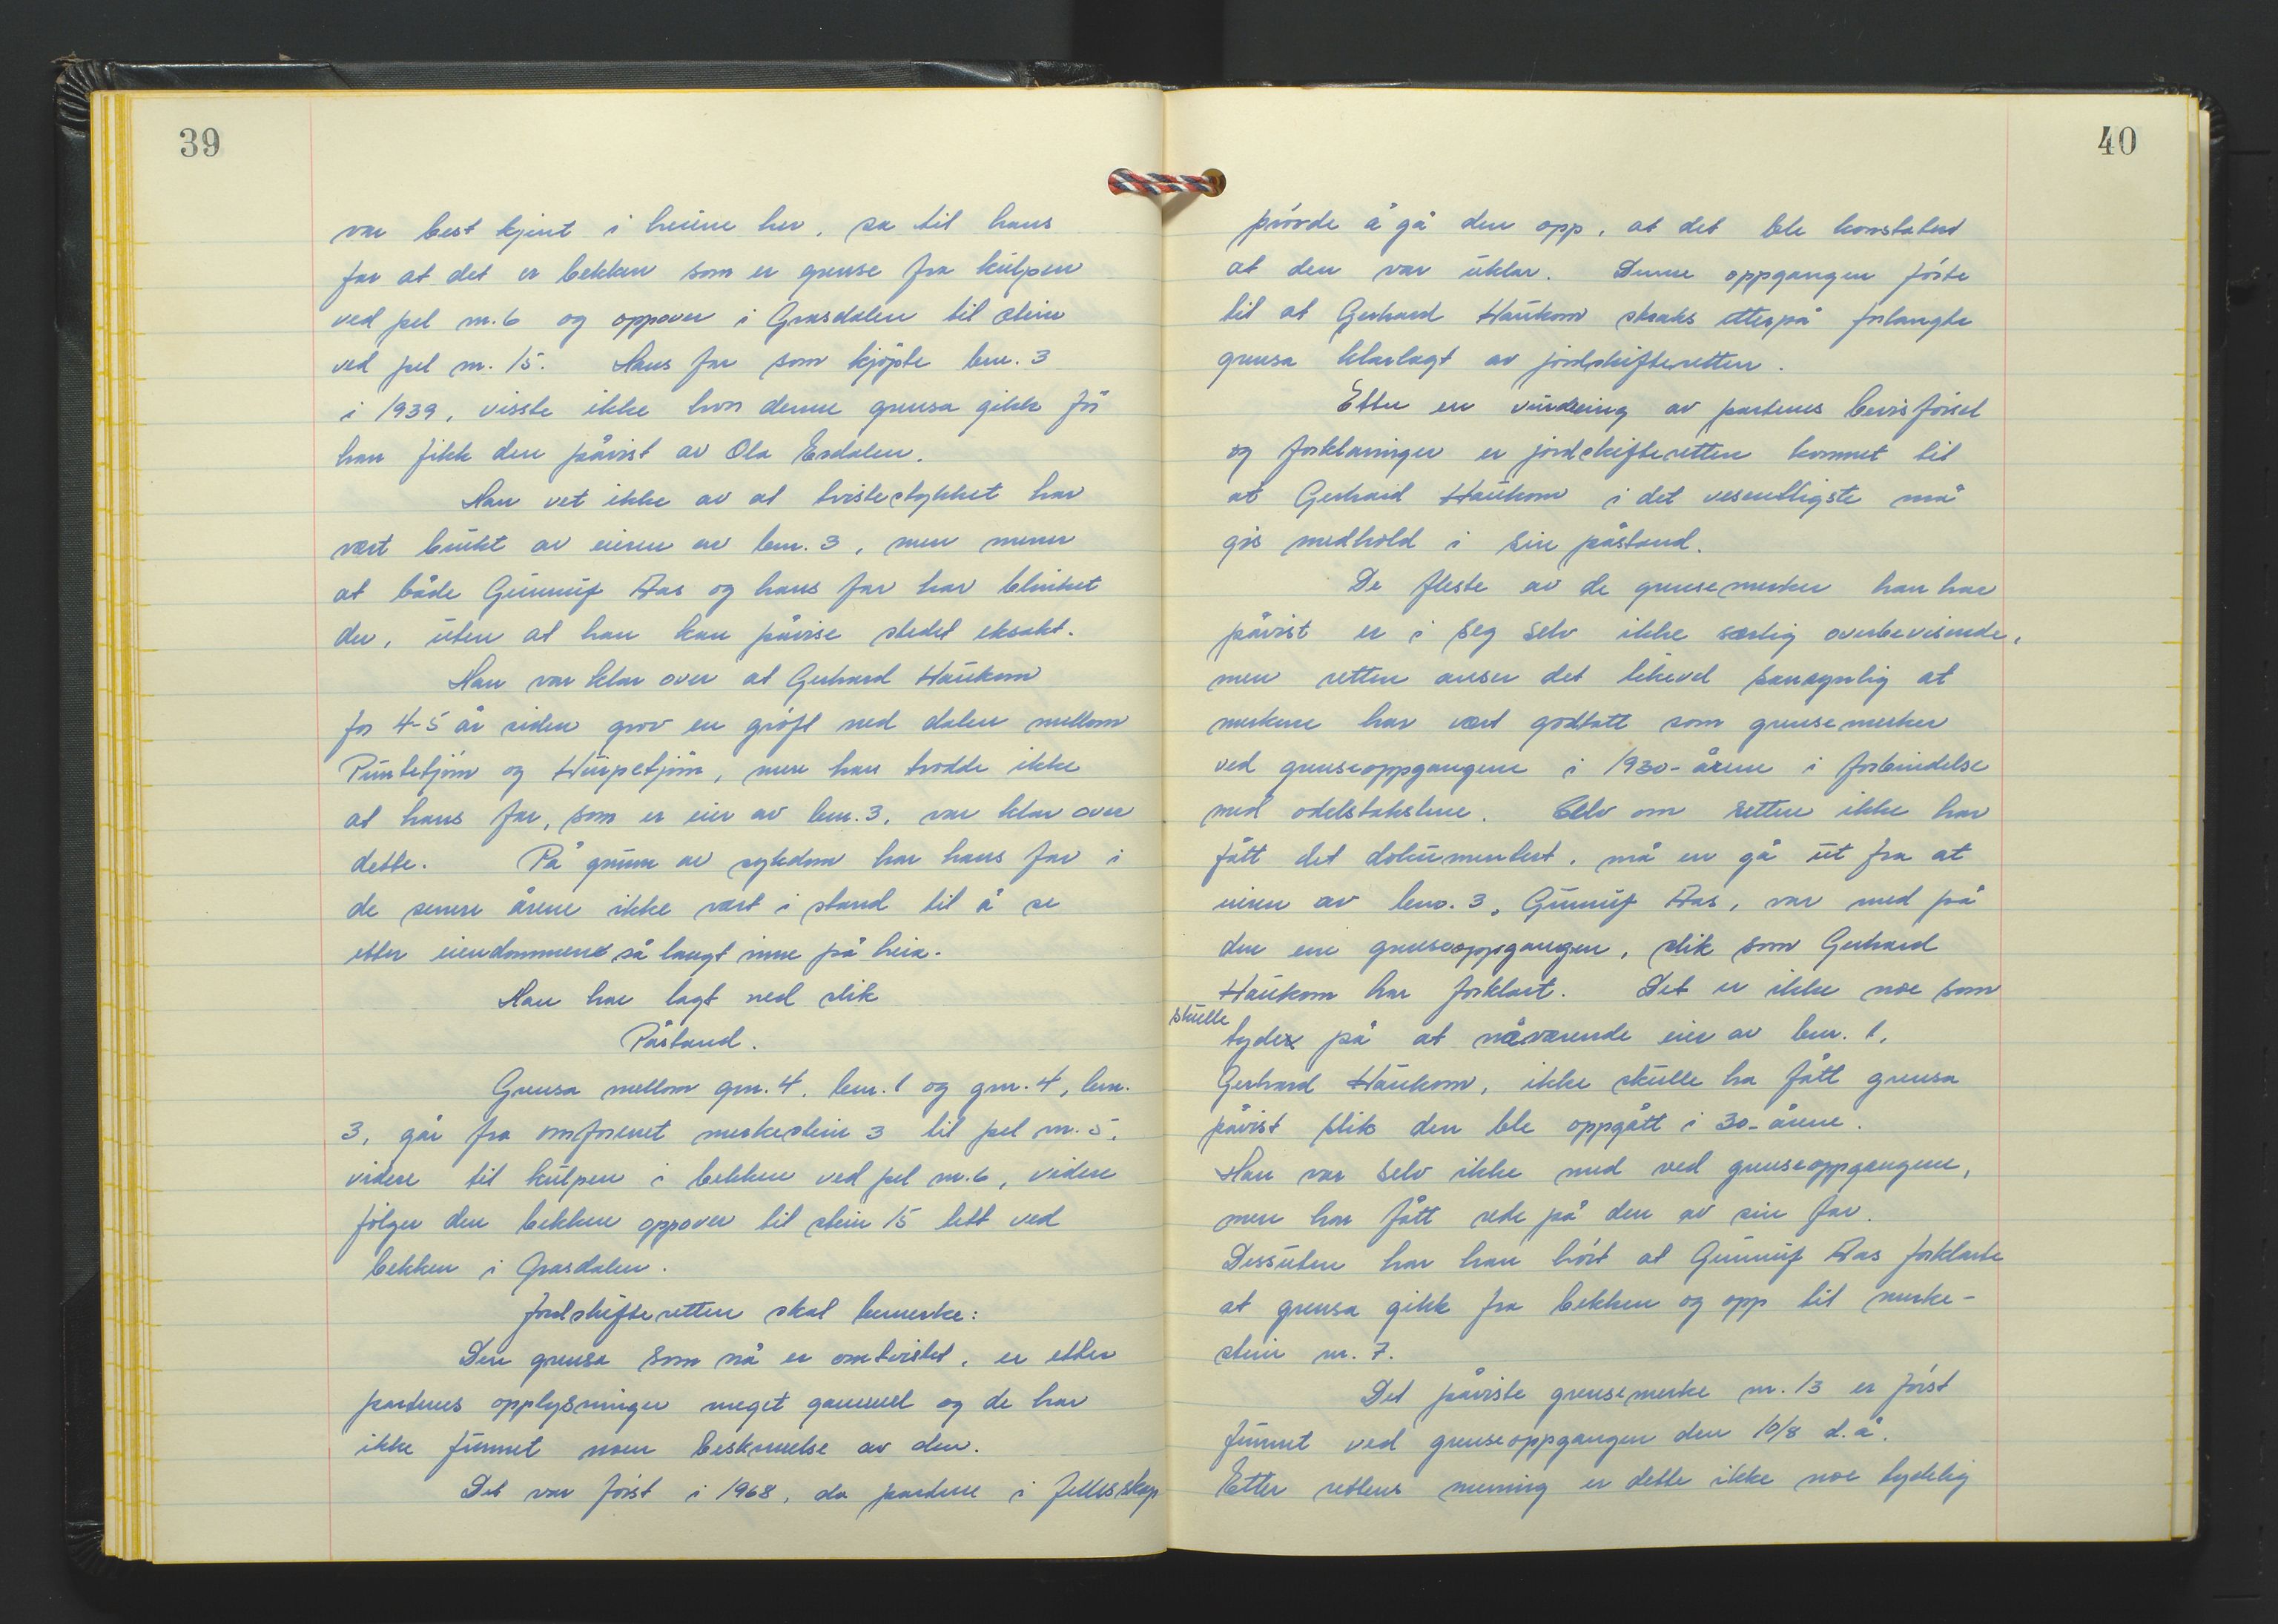 39
var best kjent i heiene her, sa til hans
far at det er bekken som er grense fra kulpen
ved pel nr. 6 og oppover i Grasdalen til stein
ved pel nr. 15. Hans far som kjøpte bnr. 3
i 1939, visste ikke hvor denne grensa gikk før
han fikk den påvist av Ola Esdalen.
Han vet ikke av at tvistestykket har
vært brukt av eieren av bnr. 3, men mener
at både Gunnuf Aas og hans far har blinket
der, uten at han kan påvise stedet eksakt.
Han var klar over at Gerhard Haukom
for 4-5 år siden grov en grøft ned dalen mellom
Puntetjønn og Hurpetjønn, men han trodde ikke
at hans far, som er eier av bnr. 3, var klar over
dette. På grunn av sykdom har hans far i
de senere årene ikke vært i stand til å se
etter eiendommene så langt inne på heia.
Han har lagt ned slik
Påstand.
Grensa mellom gnr. 4, bnr. 1 og gnr. 4, bnr.
3, går fra omforenet merkestein 3 til pel nr. 5,
videre til kulpen i bekken ved pel nr. 6, videre
følger den bekken oppover til stein 15 tett ved
bekken i Grasdalen.
Jordskifteretten skal bemerke:
Den grensa som nå er omtvistet, er etter
partenes opplysninger meget gammel og de har
ikke funnet noen beskrivelse av den.
Det var først i 1968, da partene i fellesskap
40
prøvde å gå den opp, at det ble konstatert
at den var uklar. Denne oppgangen førte
til at Gerhard Haukom straks etterpå forlangte
grensa klarlagt av jordskifteretten.
Etter en vurdering av partenes bevisførsel
og forklaringer er jordskifteretten kommet til
at Gerhard Haukom i det vesentligste må
gis medhold i sin påstand.
De fleste av de grensemerker han har
påvist er i seg selv ikke særlig overbevisende,
men retten anser det likevel sannsynlig at
merkene har vært godtatt som grensemerker
ved grenseoppgangene i 1930-årene i forbindelse
med odelstakstene. Selv om retten ikke har
fått det dokumentert, må en gå ut fra at
eieren av bnr. 3, Gunnuf Aas, var med på
den ene grenseoppgangen, slik som Gerhard
Haukom har forklart. Det er ikke noe som
skulle
tyder på at nåværende eier av bnr. 1,
Gerhard Haukom, ikke skulle ha fått grensa
påvist slik den ble oppgått i 30-årene.
Han var selv ikke med ved grenseoppgangene,
men har fått rede på den av sin far.
Dessuten har han hørt at Gunnuf Aas forklarte
at grensa gikk fra bekken og opp til merke-
stein nr. 7.
Det påviste grensemerke nr. 13 er først
funnet ved grenseoppgangen den 10/8 d.å.
Etter rettens mening er dette ikke noe tydelig